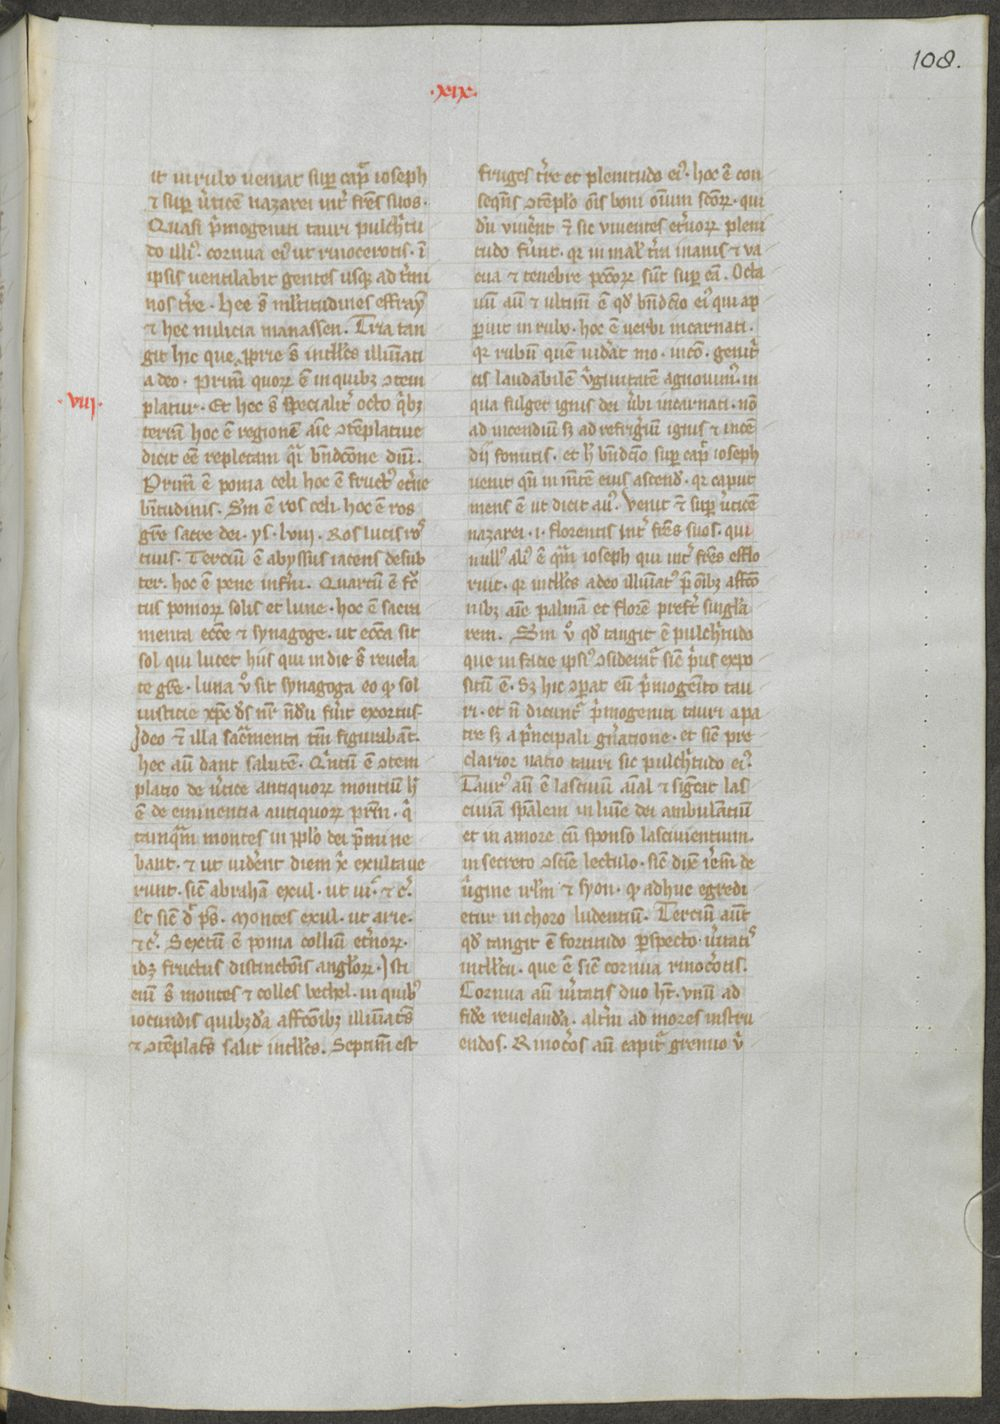 108.
·xix·
it in rubo ueniat sup cap̃ ioseph
⁊ sup ũticẽ nazarei int̃ fr̃es suos.
Quasi p̃mogeniti tauri pulch̾tu
do illiꝰ. cornua eiꝰ ut rinocerotis. ĩ
ipsis uentilabit gentes usqꝫ ad t̾mi
nos t̾re. Hee s̃ ml̾titudines effraỹ
⁊ hec milicia manassen. Tria tan
git hic que ꝓprie s̃ intll̾cs illumĩati
a deo. Primũ quoꝝ ẽ in quibꝫ ↄtem
·viij·
platur. Et hec s̃ specialit̾ octo q̾bꝫ
terrã hoc ẽ regionẽ aĩe ↄtẽplatiue
dicit eẽ repletam q̾i bñdcõne diuĩ.
Primũ ẽ poma celi hoc ẽ fructꝰ et̾ne
bt̃itudinis. Scm ẽ ros celi. hoc ẽ ros
gr̃e sacre dei. ys. lviij. Ros lucis ro᷒
tuus. Terciũ ẽ abyssus iacens desub
ter. hoc ẽ pene inferni. Quartũ ẽ fc̾
tus pomoꝝ solis et lune. hoc ẽ sacra
menta eccẽ ⁊ synagoge. ut eccã sit
sol qui lucet hiis qui in die s̃ reuela
te gr̃e. luna ũ sit synagoga eo qꝫ sol
iusticie xp̃c ds̃ nr̃ nõdũ fuit exortus.
Ideo ⁊ illa sac̾menta tm̃ figurabãt.
hec aũ dant salutẽ. Q̾ntũ ẽ ↄtem
platio de ũtice antiquoꝝ montiũ h̾
ẽ de eminentia antiquoꝝ pr̃m. q̾
tanq̃ montes in ppl̾o dei p̾mine
bant. ⁊ ut vidẽnt diem x̃i exultaue
runt. sicñ abrahã exul. ut ui᷒. ⁊ c̾.
Et sicñ d̾ ps̃. Montes exul. ut arie.
⁊c̾. Sextũ ẽ poma colliũ et̾noꝝ.
idꝫ fructus distinctõis angl̾oꝝ. Isti
eni s̃ montes ⁊ colles bethel. in quibꝰ
iocundis quibꝫdã affcõibꝫ illumĩatꝰ
⁊ ↄtẽplatꝰ salit intll̾cs. Septimũ est
fruges t̾re et plenitudo eiꝰ. hoc ẽ con
seqñs ↄtẽpl̾o õis boni oĩum scõꝝ. qui
dũ viuẽnt ⁊ sic viuentes et̾noꝝ pleni
tudo fũnt. qꝛ in mal̾ t̾ra inanis ⁊ va
cua ⁊ tenebre pc̃oꝝ sũt sup eã. Octa
uũ aũ ⁊ ultimũ ẽ qd̾ bñdcõ eiꝰ qui ap
ꝑuit in rubo. hoc ẽ uerbi incarnati.
qꝛ rubũ quẽ vidãt mo. incõ. genit̾
cis laudabilẽ ũginitatẽ agnouimꝰ. in
qua fulget ignis dei ũbi incarnati. nõ
ad incendiũ sꝫ ad refrigiũ ignis ⁊ incẽ
dij fomitis. et h̾ bñdcõ sup cap̃ ioseph
uenit qñ in mẽtẽ eius ascend̾. qꝛ caput
mens ẽ ut dicit auꝰ. Venit ⁊ sup ũticẽ
nazarei .i. florentis int̾ fr̃es suos. qui
nullꝰ aliꝰ ẽ q̃m ioseph qui int̾ fr̃es efflo
ruit. qꝛ intll̾cs a deo illumĩatꝰ p̾ oĩbꝫ affcõ
nibꝫ aĩe palmã et florẽ prefert̾ singl̾a
rem. Scm ũ qd̾ tangit ẽ pulch̾tudo
que in facie ipsiꝰ ↄsiderat̾ sicñ p̾us expo
situm ẽ. Sꝫ hic ↄparat eũ p̾mogenito tau
ri. et ñ dicunt̾ p̾mogeniti tauri a pa
tre sꝫ a p̾ncipali gñatione. et sicñ pre
clarior natio tauri sic pulch̾tudo eiꝰ.
Taurꝰ aũ ẽ lasciuũ aĩal ⁊ sig̃cat las
ciuiam spãlem in lumĩe dei ambulãtiũ
et in amore cũ sponso lasciuientium.
in secreto ↄscĩe lectulo. sicñ dix̃ ieremĩ de
ũgine irl̾m ⁊ syon. qꝫ adhuc egredi
etur in choro ludentiũ. Terciũ aũt
qd̾ tangit ẽ fortitudo ꝑspecto ũitatis
intll̾cu. que ẽ sicñ cornua rinoc̾otis.
Cornua aũ ũitatis duo hñt. vnũ ad
fidẽ reuelandã. alt̾m ad mores instru
endos. Rinoc̾os aũ capit̾ gremio ũ